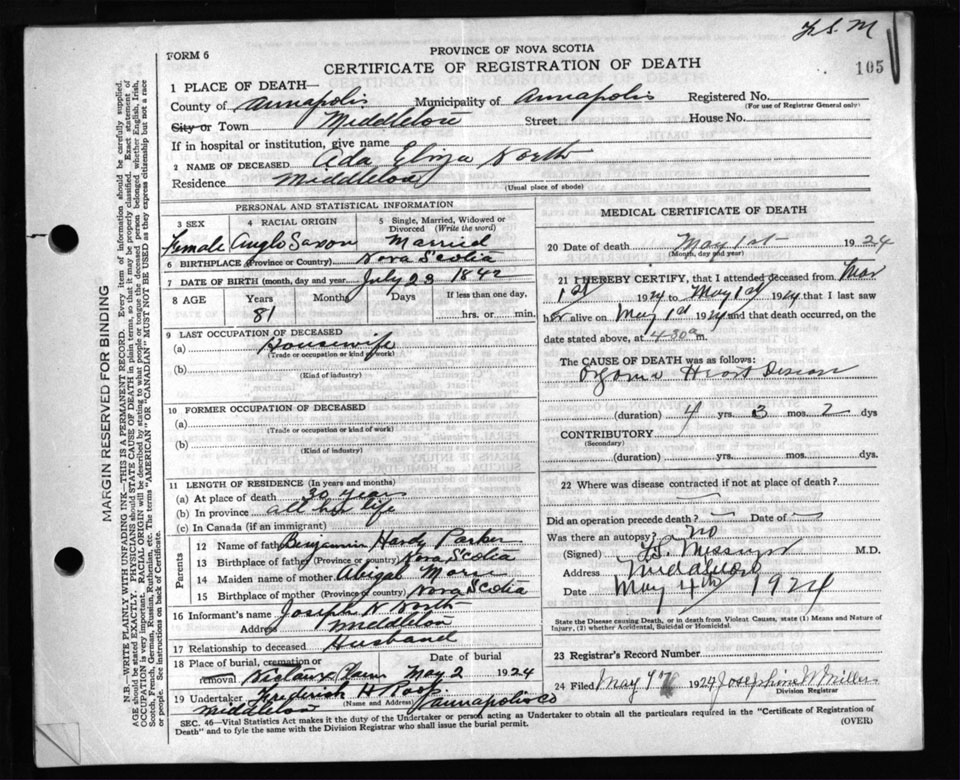 F. S. M
105
FORM 6
PROVINCE OF NOVA SCOTIA
CERTIFICATE OF REGISTRATION OF DEATH
1 PLACE OF DEATH—
County of Annapolis Municipality of Annapolis Registered No.
(For use of Registrar General only)
City or Town Middleton Street House No.
If in hospital or institution, give name
2 NAME OF DECEASED Ada Eliza North
Residence Middleton
(Usual place of abode)
PERSONAL AND STATISTICAL INFORMATION
3 SEX 4 RACIAL ORIGIN 5 Single, Married, Widowed or Divorced (Write the word)
Female Anglo Saxon Married
6 BIRTHPLACE (Province or Country) Nova Scotia
7 DATE OF BIRTH (month, day and year) July 23 1842
8 AGE Years Months Days If less than one day,
81 hrs. or min.
9 LAST OCCUPATION OF DECEASED
(a) Housewife
(Trade or occupation or kind of work)
(b)
(Kind of industry)
10 FORMER OCCUPATION OF DECEASED
(a)
(Trade or occupation or kind of work)
(b)
(Kind of industry)
11 LENGTH OF RESIDENCE (In years and months)
(a) At place of death 30 years
(b) In province all her life
(c) In Canada (if an immigrant)
Parents
12 Name of father Benjamin Hardy Parker
13 Birthplace of father (Province or country) Nova Scotia
14 Maiden name of mother Abigal Morse
15 Birthplace of mother (Province or country) Nova Scotia
16 Informant's name Joseph N North
Address Middleton
17 Relationship to deceased Husband
18 Place of burial, cremation or removal Date of burial
Nictaux Plain May 2 1924
19 Undertaker Frederick H Roop
(Name and Address)
Middleton Annapolis Co
MEDICAL CERTIFICATE OF DEATH
20 Date of death May 1st 1924
(Month, day and year)
21 I HEREBY CERTIFY, that I attended deceased from Mar
1st 1924 to May 1st 1924 that I last saw
her alive on May 1st 1924 and that death occurred, on
date stated above, at 4-30 a m.
The CAUSE OF DEATH was as follows:
Organic Heart Disease
(duration) 4 yrs. 3 mos. 2 dys
CONTRIBUTORY
(Secondary)
(duration) yrs. mos. dys.
22 Where was disease contracted if not at place of death?
Did an operation precede death? — Date of —
Was there an autopsy? no
(Signed) Messinger M.D.
Address Middleton
Date May 4th 1924
State the Disease causing Death, or in death from Violent Causes, state (1) Means and Nature of
Injury, (2) whether Accidental, Suicidal or Homicidal.
23 Registrar's Record Number
24 Filed May 9th 1924 Josephine W Miller
Division Registrar
SEC. 46—Vital Statistics Act makes it the duty of the Undertaker or person acting as Undertaker to obtain all the particulars required in the "Certificate of Registration of
Death" and to fyle the same with the Division Registrar who shall issue the burial permit.
(OVER)
MARGIN RESERVED FOR BINDING
N.B.—WRITE PLAINLY WITH UNFADING INK—THIS IS A PERMANENT RECORD. Every item of information should be carefully supplied.
AGE should be stated EXACTLY. PHYSICIANS should STATE CAUSE OF DEATH in plain terms, so that it may be properly classified. Exact statement of
OCCUPATION is very important. RACIAL ORIGIN will be described by stating to what people or tongue the deceased person belonged whether English, Irish,
Scotch, French, German, Russian, Ruthenian, etc. The terms "AMERICAN" OR "CANADIAN" MUST NOT BE USED as they express citizenship but not a race
or people. See instructions on back of Certificate.